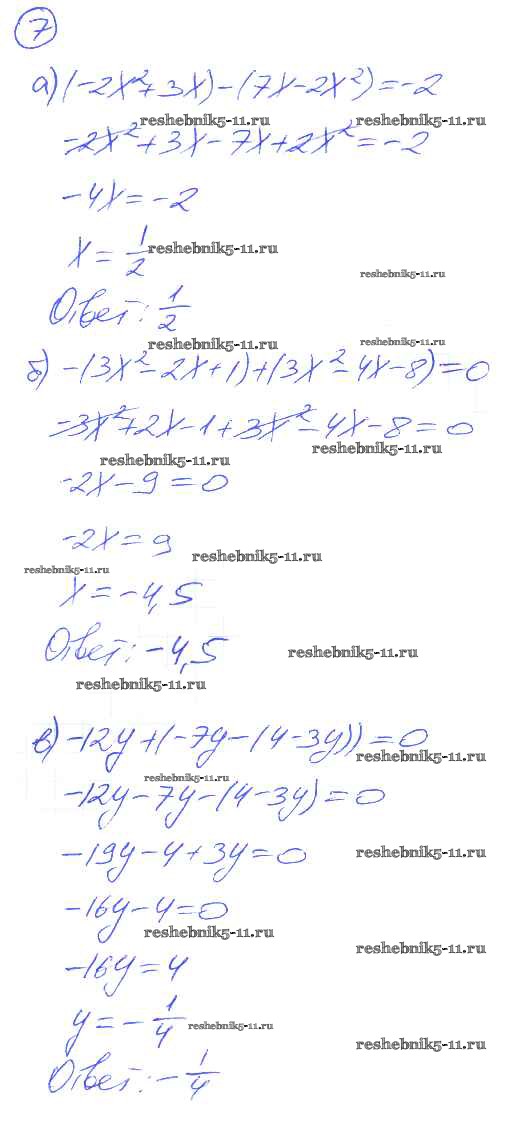 7
а) (-2x²+3x)-(7x-2x²)=-2
reshebnik5-11.ru reshebnik5-11.ru
-2x²+3x-7x+2x²=-2
-4x=-2
x=1/2 reshebnik5-11.ru
reshebnik5-11.ru
Ответ: 1/2
reshebnik5-11.ru reshebnik5-11.ru
б) -(3x²-2x+1)+(3x²-4x-8)=0
-3x²+2x-1+3x²-4x-8=0
reshebnik5-11.ru reshebnik5-11.ru
-2x-9=0
-2x=9 reshebnik5-11.ru
reshebnik5-11.ru
x=-4,5
Ответ: -4,5 reshebnik5-11.ru
reshebnik5-11.ru
в) -12y+(-7y-(4-3y))=0
reshebnik5-11.ru
reshebnik5-11.ru
-12y-7y-(4-3y)=0
-19y-4+3y=0 reshebnik5-11.ru
-16y-4=0
reshebnik5-11.ru reshebnik5-11.ru
-16y=4
y=-1/4 reshebnik5-11.ru
reshebnik5-11.ru
Ответ: -1/4